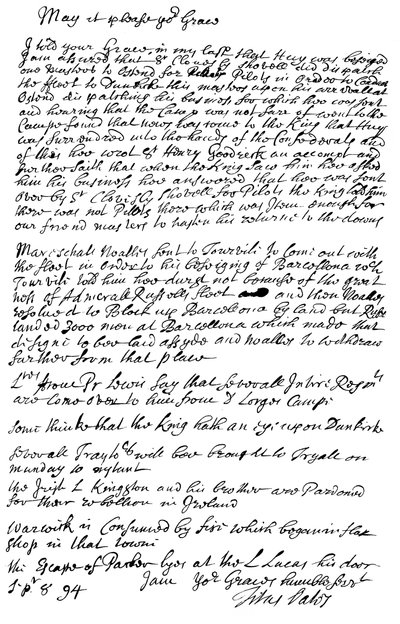 May it please yor Grace
I told your Grace, in my last that Huy was besieged
I am assured that Sr Clouesly Shovell did dispatch
one mastors to Ostend for Pilots in order to
the ffleet to Dunkirk this mastor upon his arrvall at
Ostend dispatching his business for which hee was sent
and hearing that the Camp was not farr of went to the
Campe found that news was come to the King that Huy
was surrendred into the hands of the Confederats and
of this hee wrot Sr Henry Goodrick an accompt and
further saith that when the King saw him hee asked
him his business hee answered that hee was sent
over by Sr Clovisly Shovell for Pilots the King told him
there was not Pilots there which was Them enough for
our friend masters to hasten his returne to the downs
Mareschall Noallis sent to Tourvill to Comi out with
the fleet in order to his besiging of Barcellona
Tourvill told him hee durst not because of the great
ness of Admerall Russells fleet and then Noalles
resolved to Block up Barcellona by land but Russ
landed 3000 men at Barcellona which made that
disigne to bee laid assyde and Noalles to withdraw
further from that place
Lres from Pr Lewis say that severall Intire Regmts
are come over to him from D Lorges Campe
Some thinke that the King hath an eye upon Dunkirke
Severall Traytors will bee brought to Tryall on
munday to nyant
the Irish L Kingston and his brother are Pardoned
for their rebellion in Ireland
Warwick is Consumed by fire which began in flax
shop in that towne
the Escape of Parker lyes at the L Lucas his door
Sepr 8 94 I am Yor Graces humble servt
Titus Oates